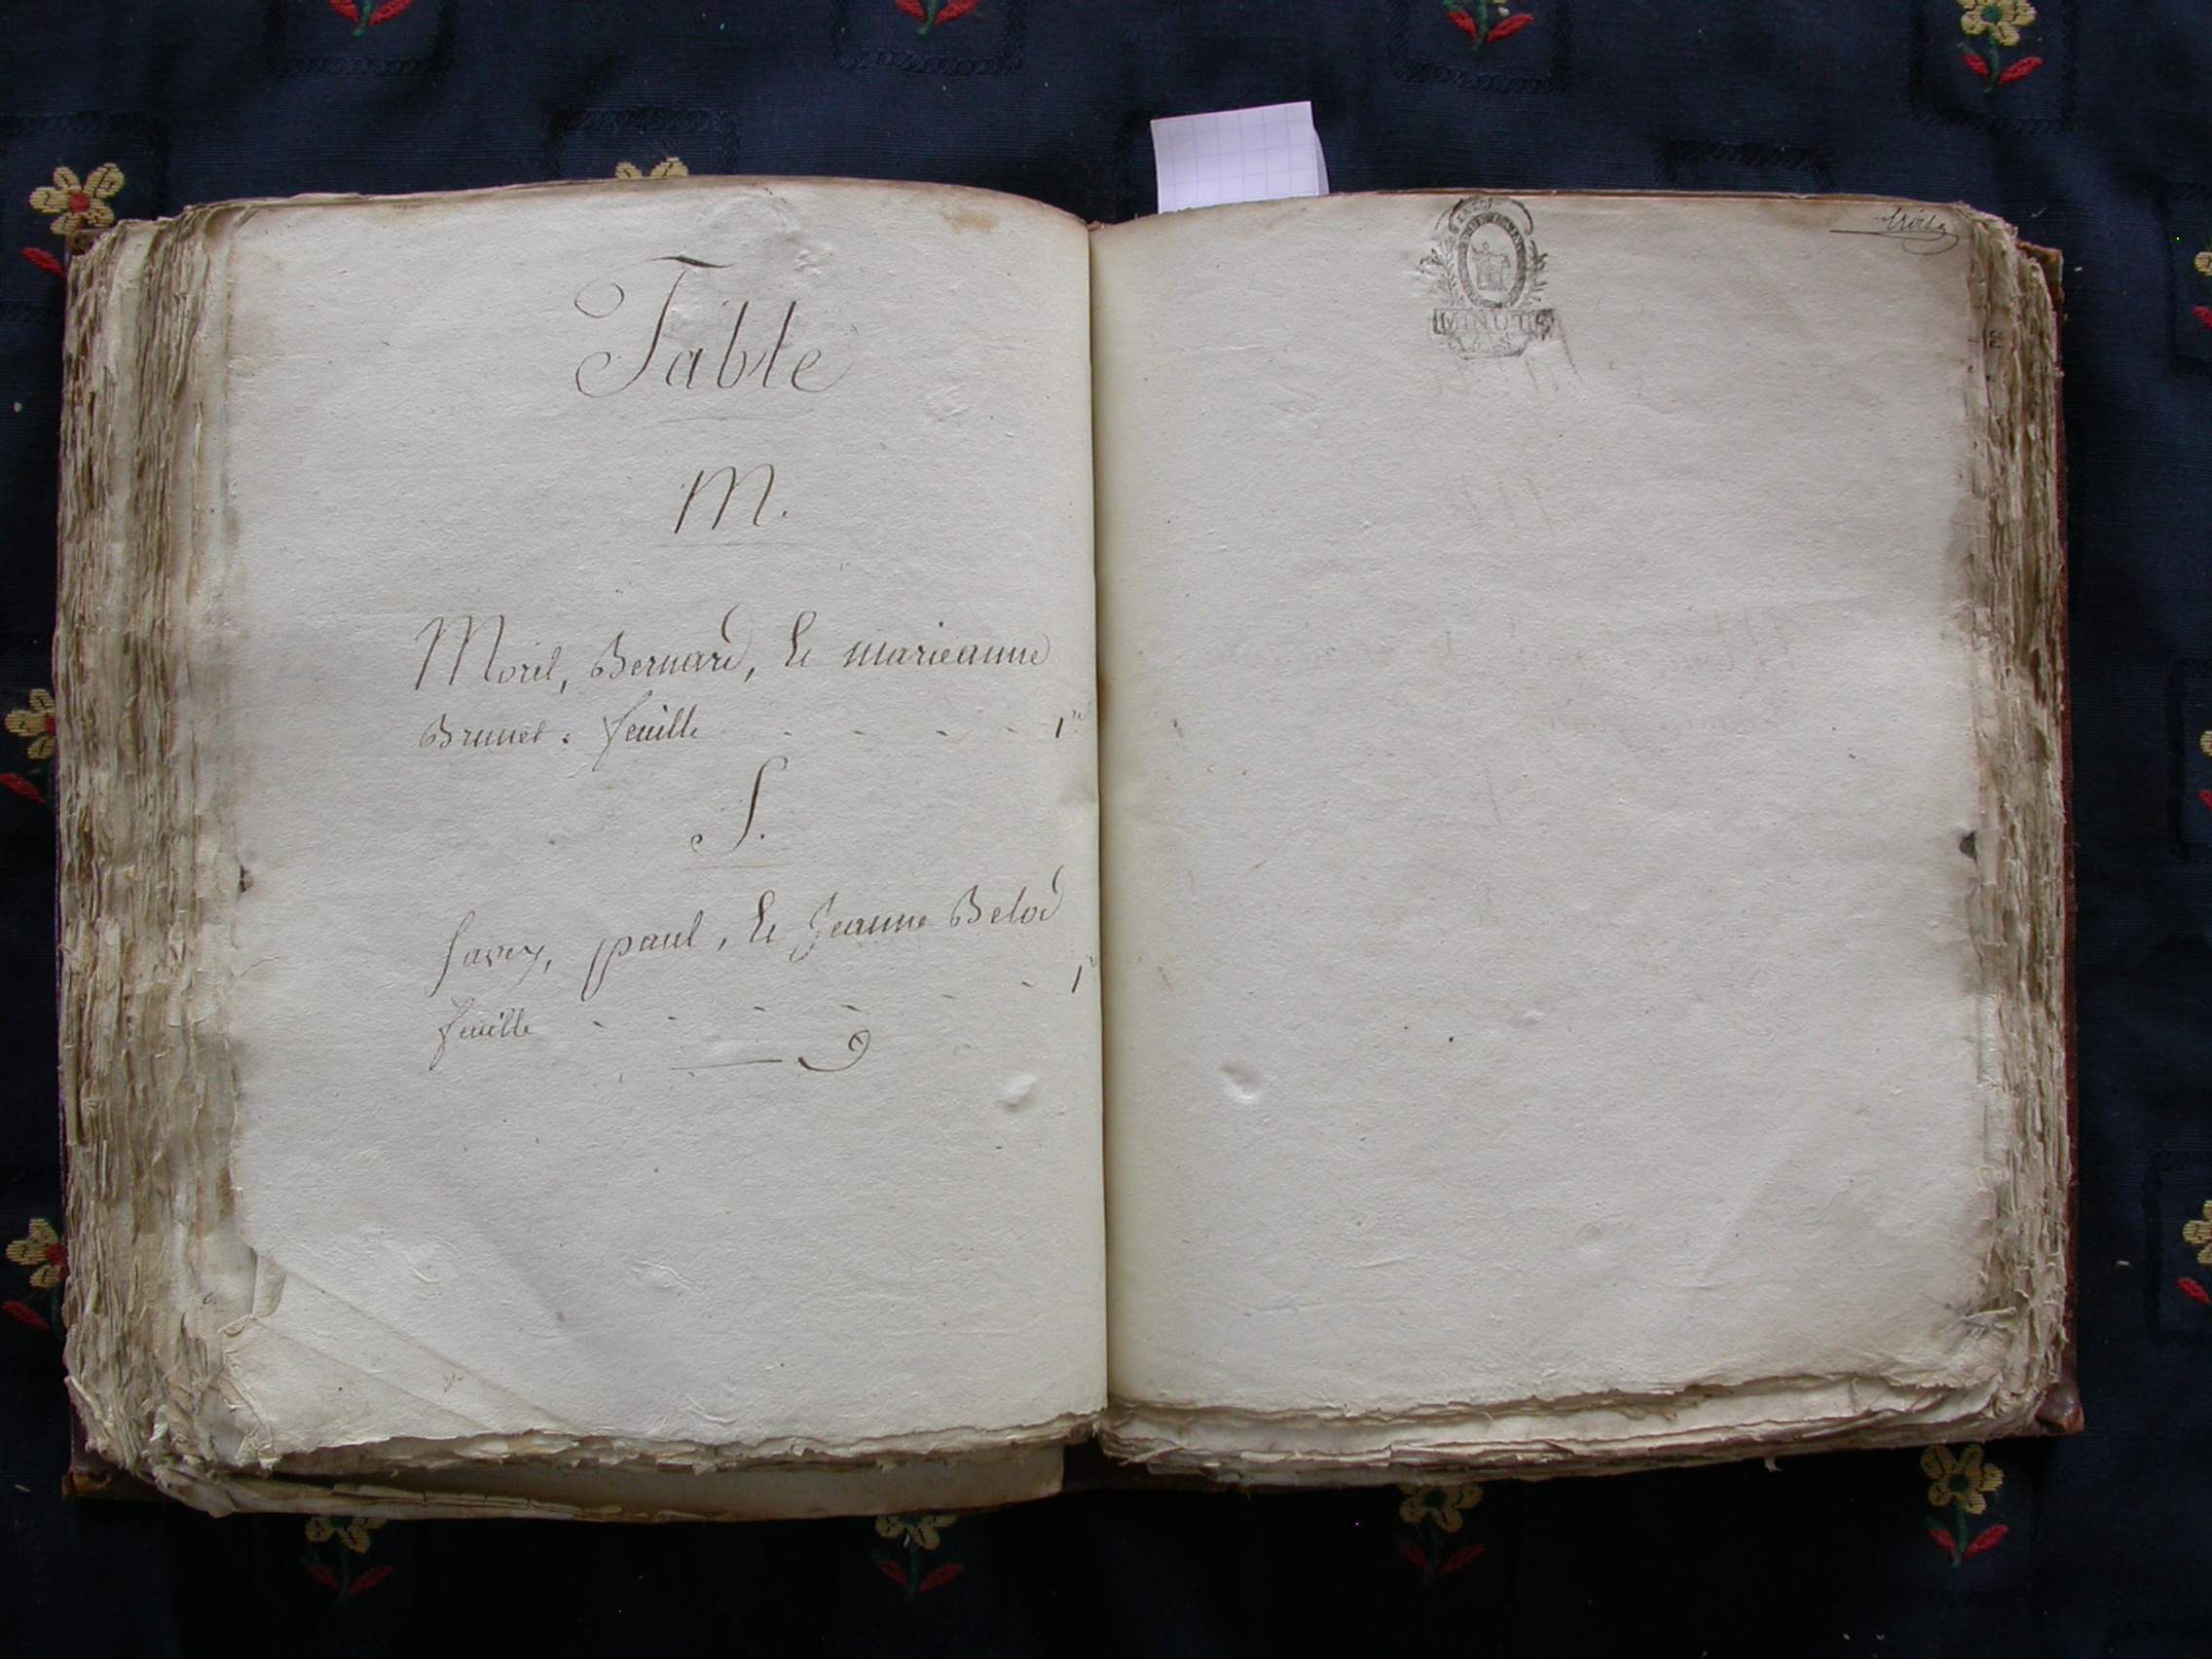 Table
M.
Morel, Bernard, Et marieanne
Brunet. feuille - - - - 1re
S.
Savey, paul, Et Jeanne Belod
feuille - - - - - - 1re
trois
MINUTE